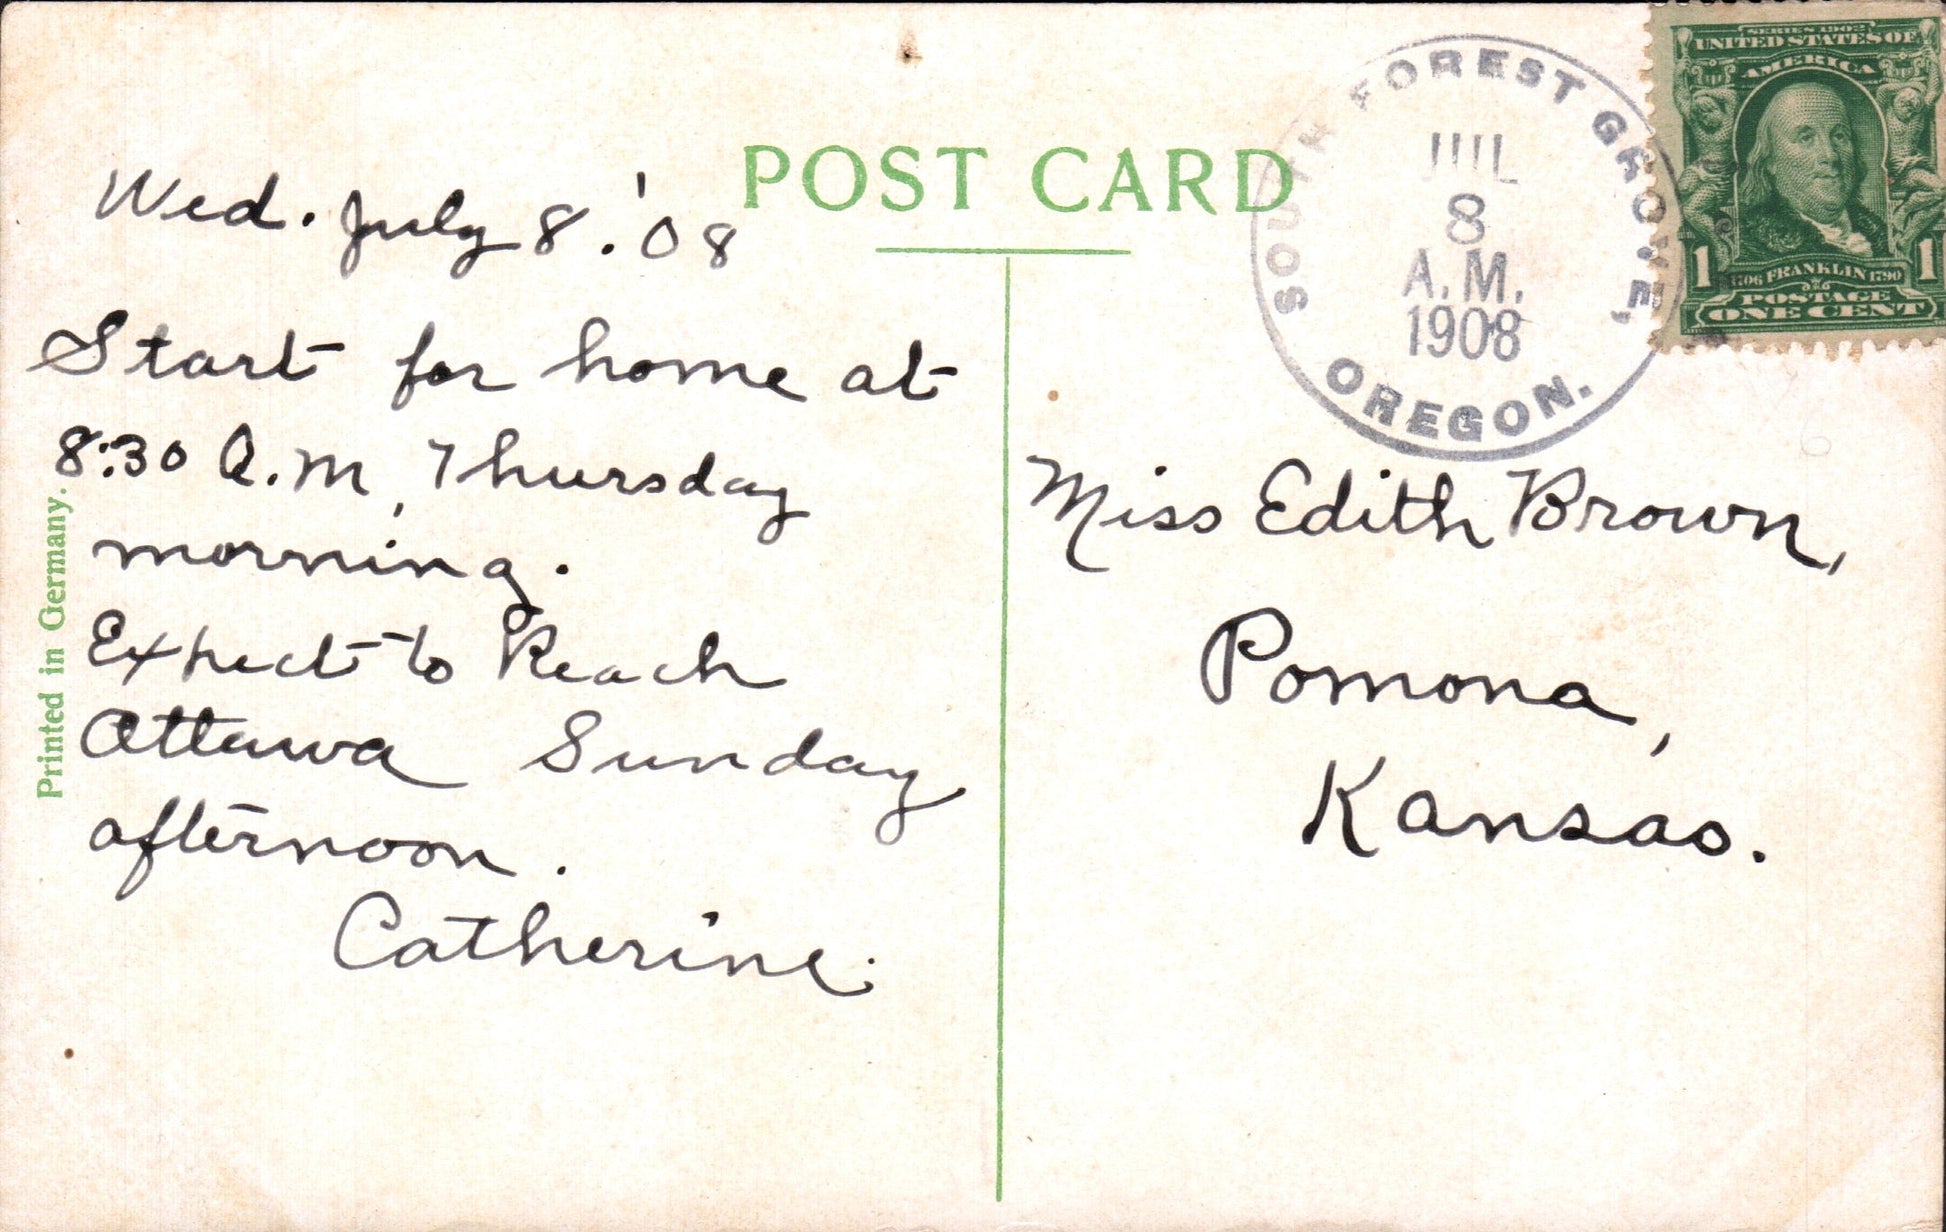 POST CARD
Wed. July 8. '08
Start for home at
8:30 A.M, Thursday
morning.
Expect to Reach
Ottawa Sunday
afternoon.
Catherine.
Printed in Germany.
SOUTH FOREST GROVE,
JUL
8
A.M.
1908
OREGON.
SERIES 1902
UNITED STATES OF
AMERICA
1706 FRANKLIN 1790
1 1
POSTAGE
ONE CENT
Miss Edith Brown,
Pomona,
Kansas.